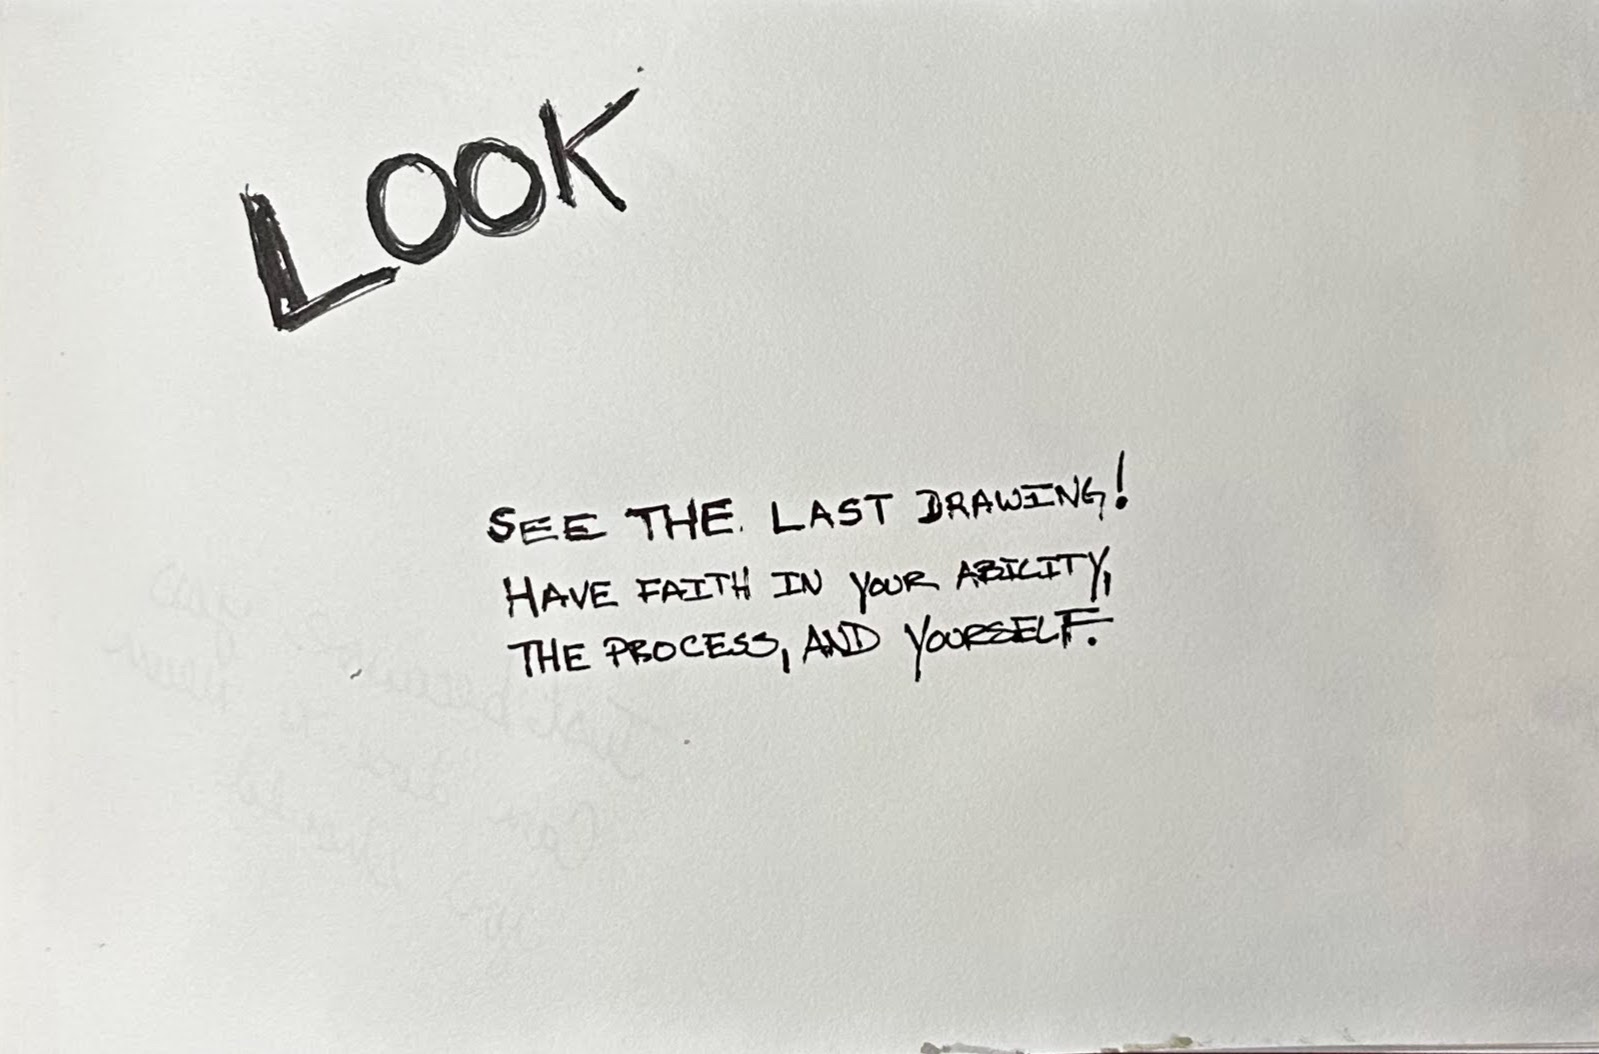 LOOK
SEE THE. LAST DRAWING!
HAVE FAITH IN YOUR ABILITY,
THE PROCESS, AND YOURSELF.